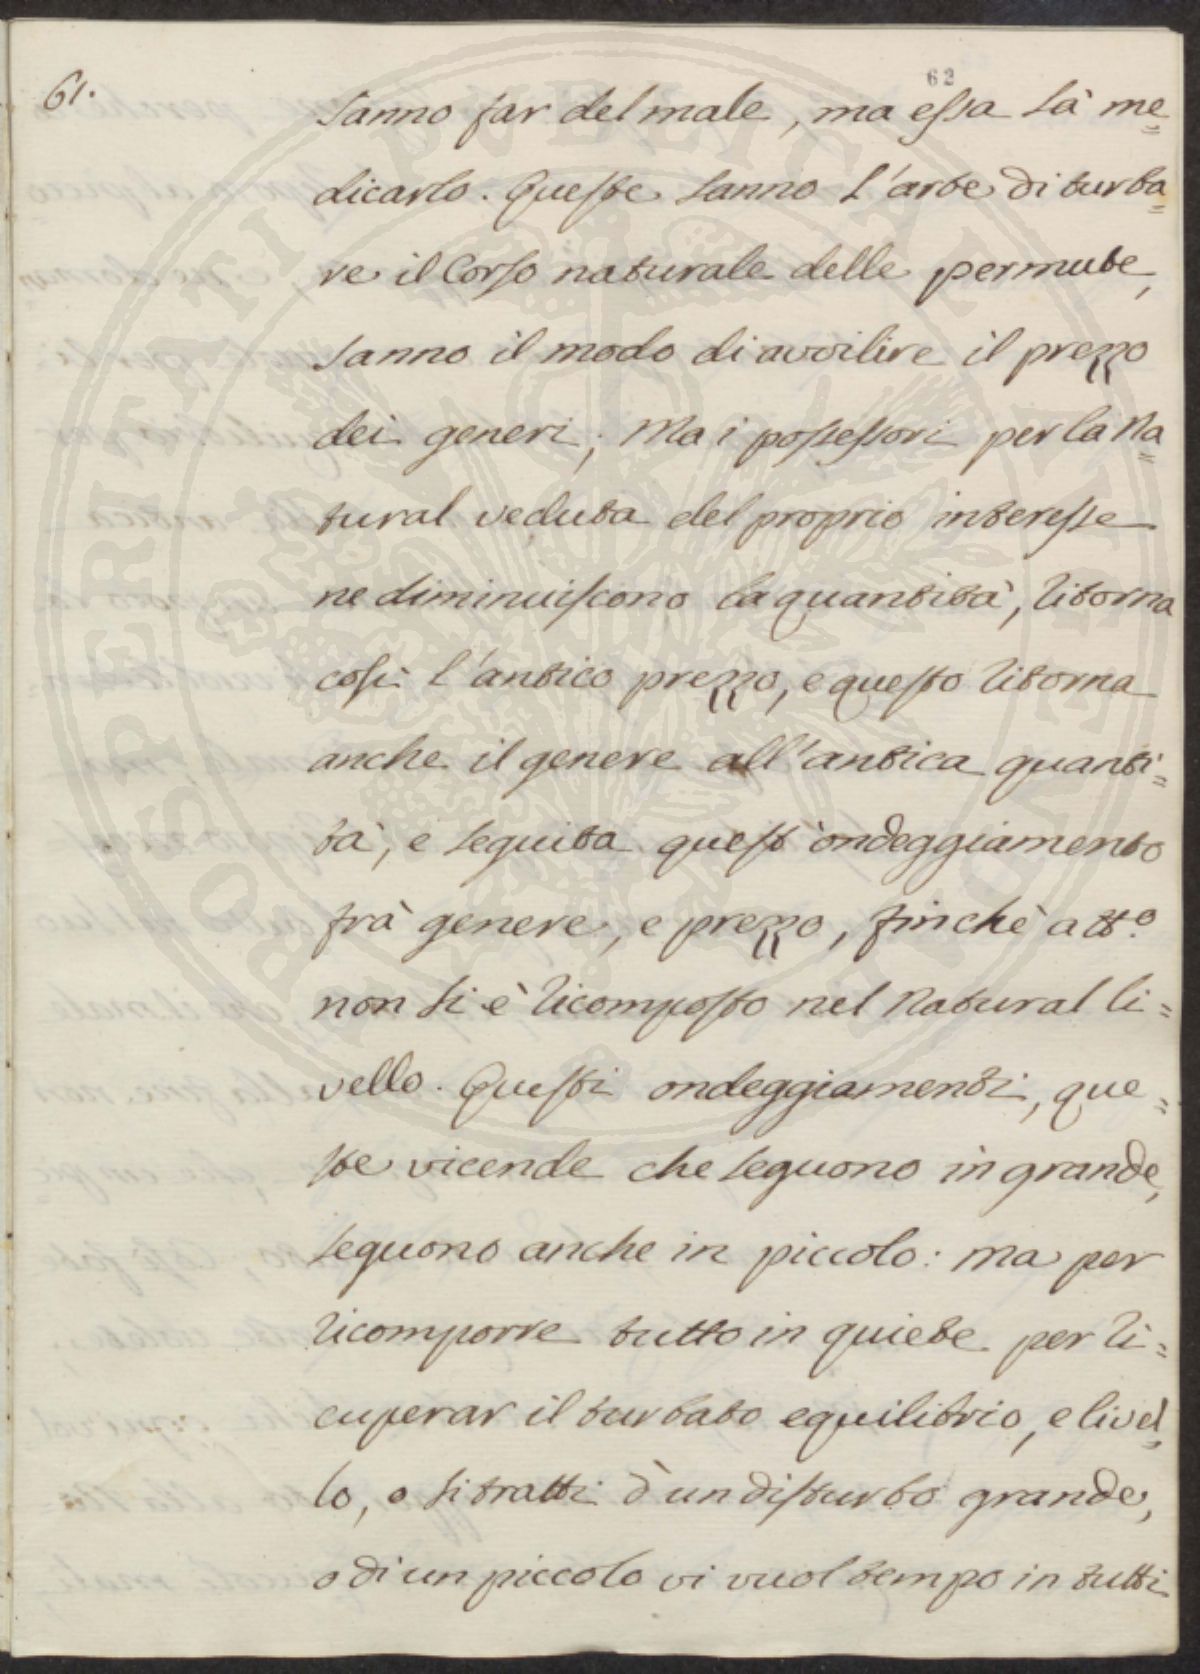 62
61.
sanno far del male, ma essa sà me=
dicarlo. Queste sanno l'arte di turba=
re il Corso naturale delle permute,
sanno il modo di avvilire il prezzo
dei generi; Ma i possessori per la Na=
tural veduta del proprio interesse
ne diminuiscono la quantità, ritorna
così l'antico prezzo, e questo ritorna
anche il genere all'antica quanti=
tà, e seguita quest'ondeggiamento
frà genere, e prezzo, finchè a tt.º
non si è ricomposto nel Natural li=
vello. Questi ondeggiamenti, que=
ste vicende che seguono in grande,
seguono anche in piccolo: ma per
ricomporre tutto in quiete per ri=
cuperar il turbato equilibrio, e livel=
lo, o si tratti d'un disturbo grande,
o di un piccolo vi vuol tempo in tutti
PROSPERITATI PVBLICAE AVGENDAE